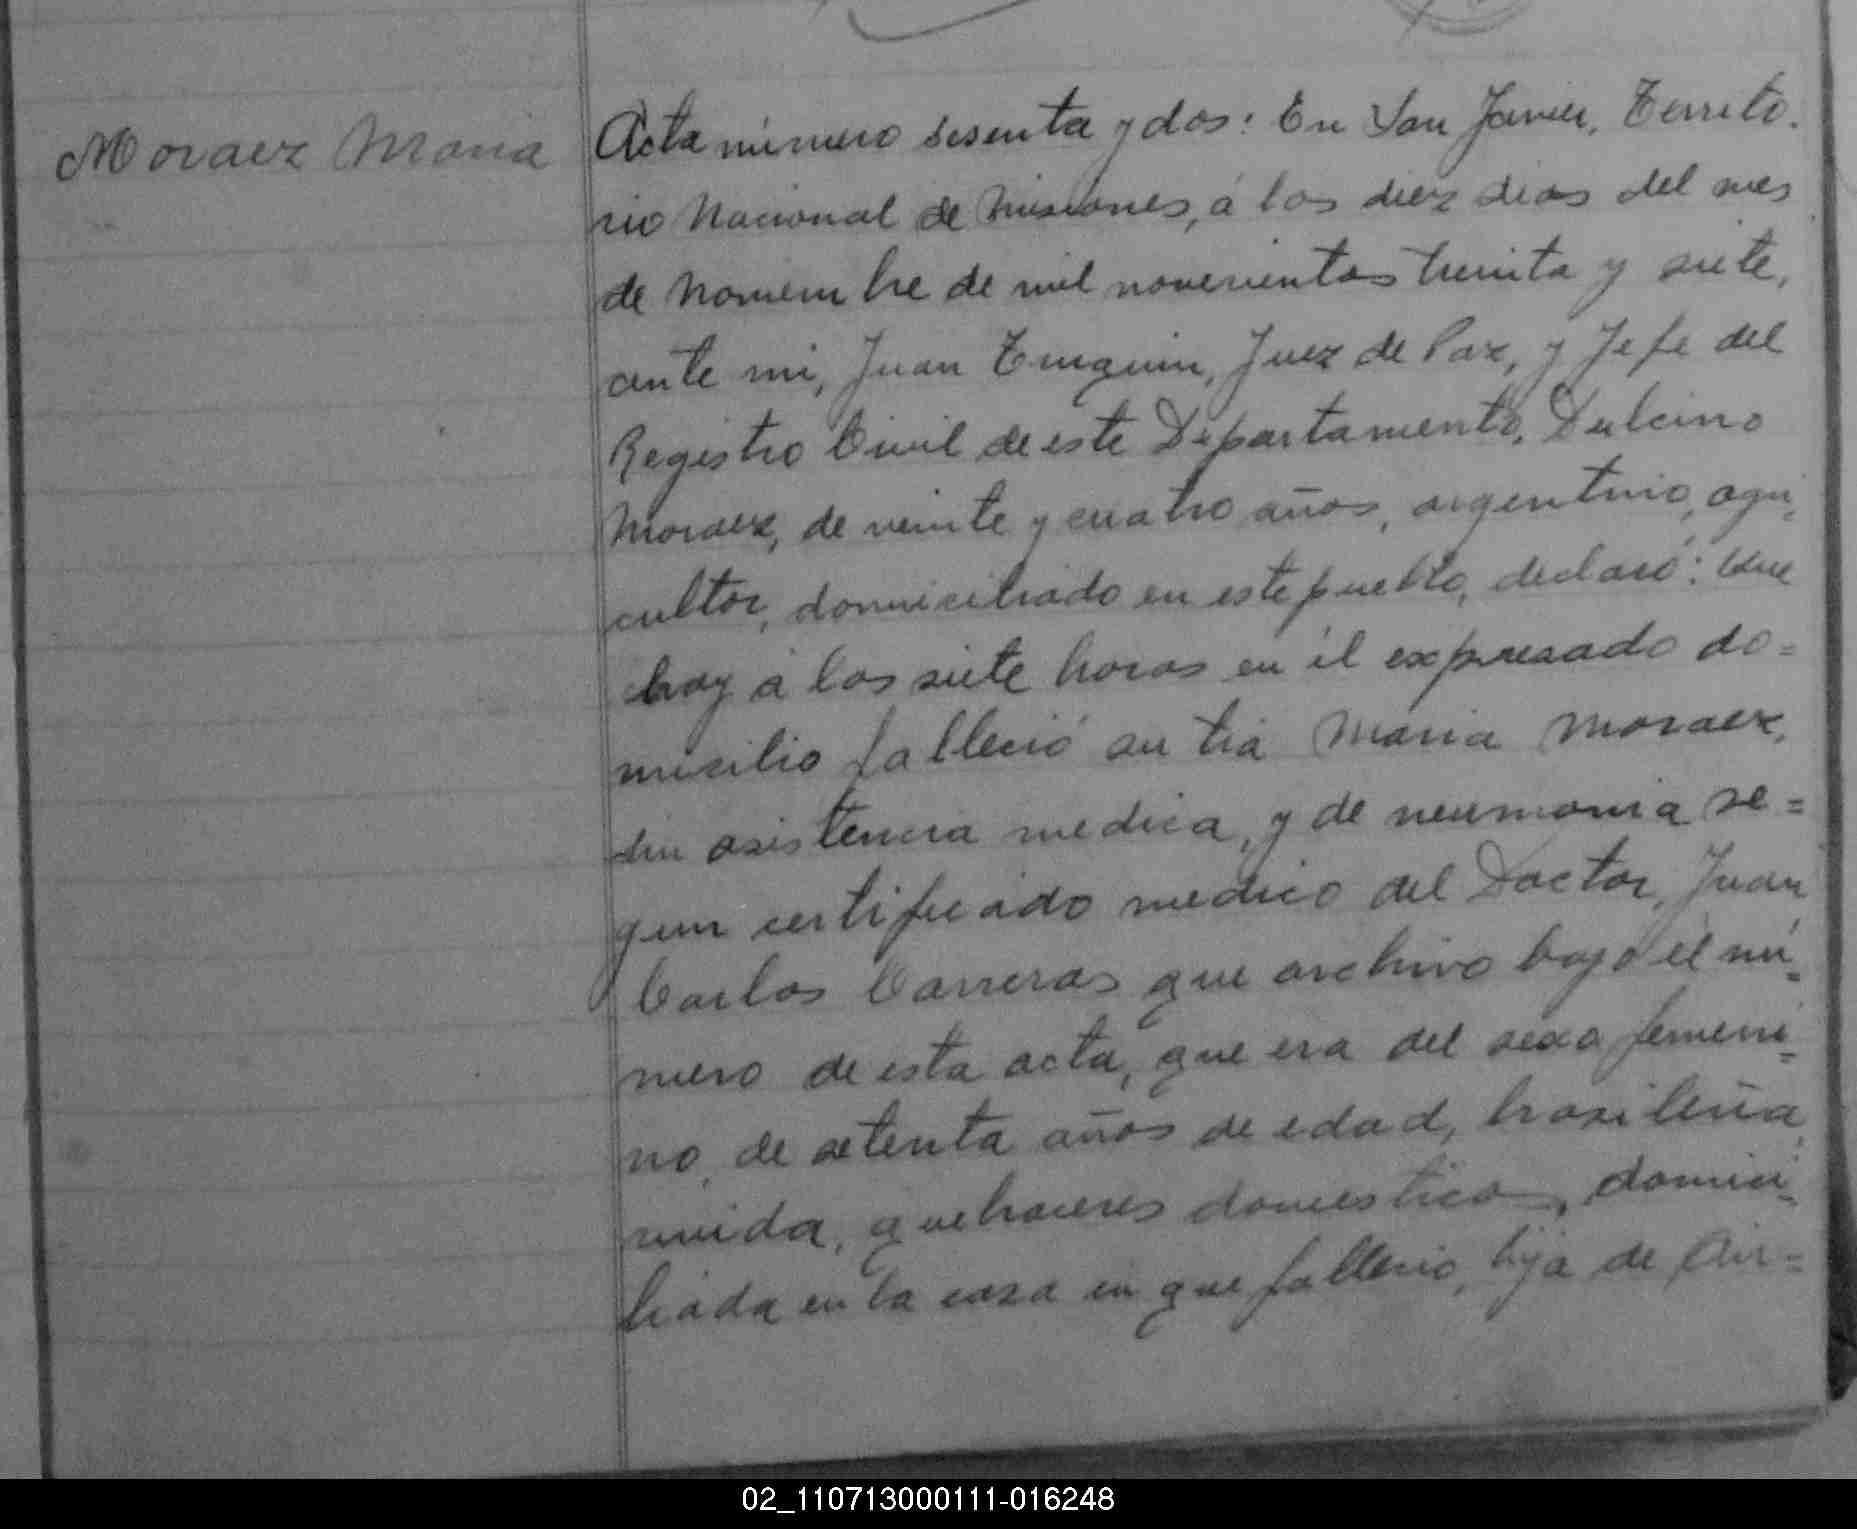 Moraez Maria
Acta número sesenta y dos: En San Javier, Territo-
rio Nacional de Misiones, á los diez dias del mes
de Noviembre de mil novecientos treinta y siete,
ante mi, Juan Juez de Paz, y Jefe del
Registro Civil de este Departamento, Dulcino
Moraez, de veinte y cuatro años, argentino, agri-
cultor, domiciliado en este pueblo, declaró: Que
hoy á las siete horas en él expresado do=
micilio falleció su tiá Maria Moraez,
sin asistencia medica, y de neumonia se=
gun certificado medico del Doctor, Juan
Carlos Carreras que archivo bajo él nú=
mero de esta acta, que era del sexo femeni=
no, de setenta años de edad, brasileña,
viuda, quehaceres domesticos, domici=
liada en la casa en que fallecio, hija de
02_110713000111-016248